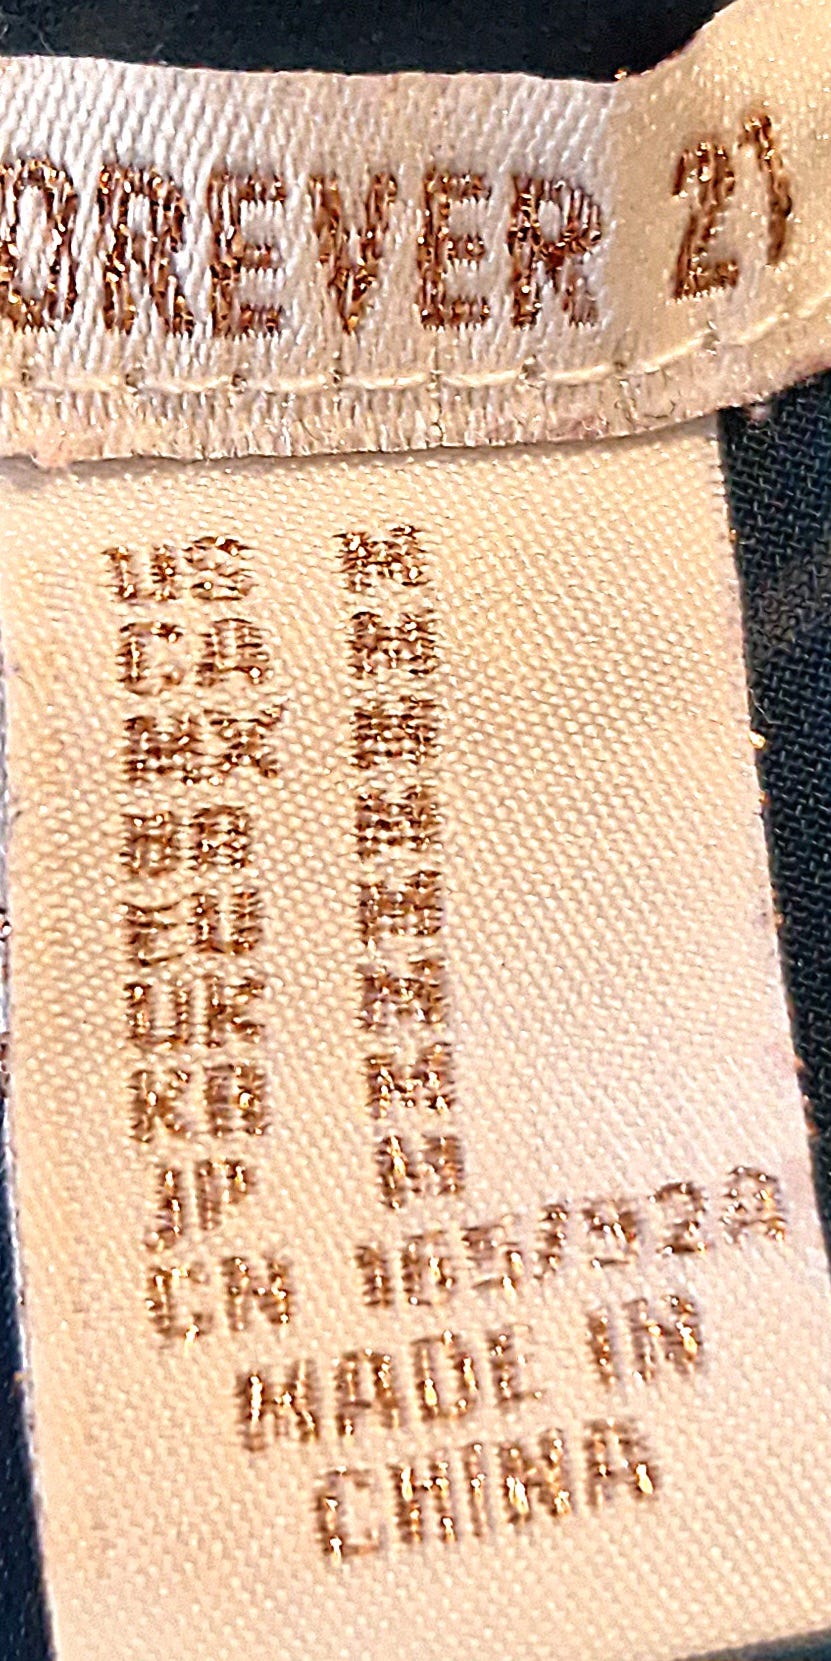 FOREVER 21
US M
CA M
MX M
BR M
EU M
UK M
KR M
JP M
CN 165/92A
MADE IN
CHINA